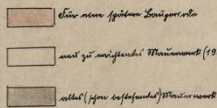 Für eine spätere Bauperiode
neu zu errichtendes Mauerwerk (19
altes (schon bestehendes) Mauerwerk